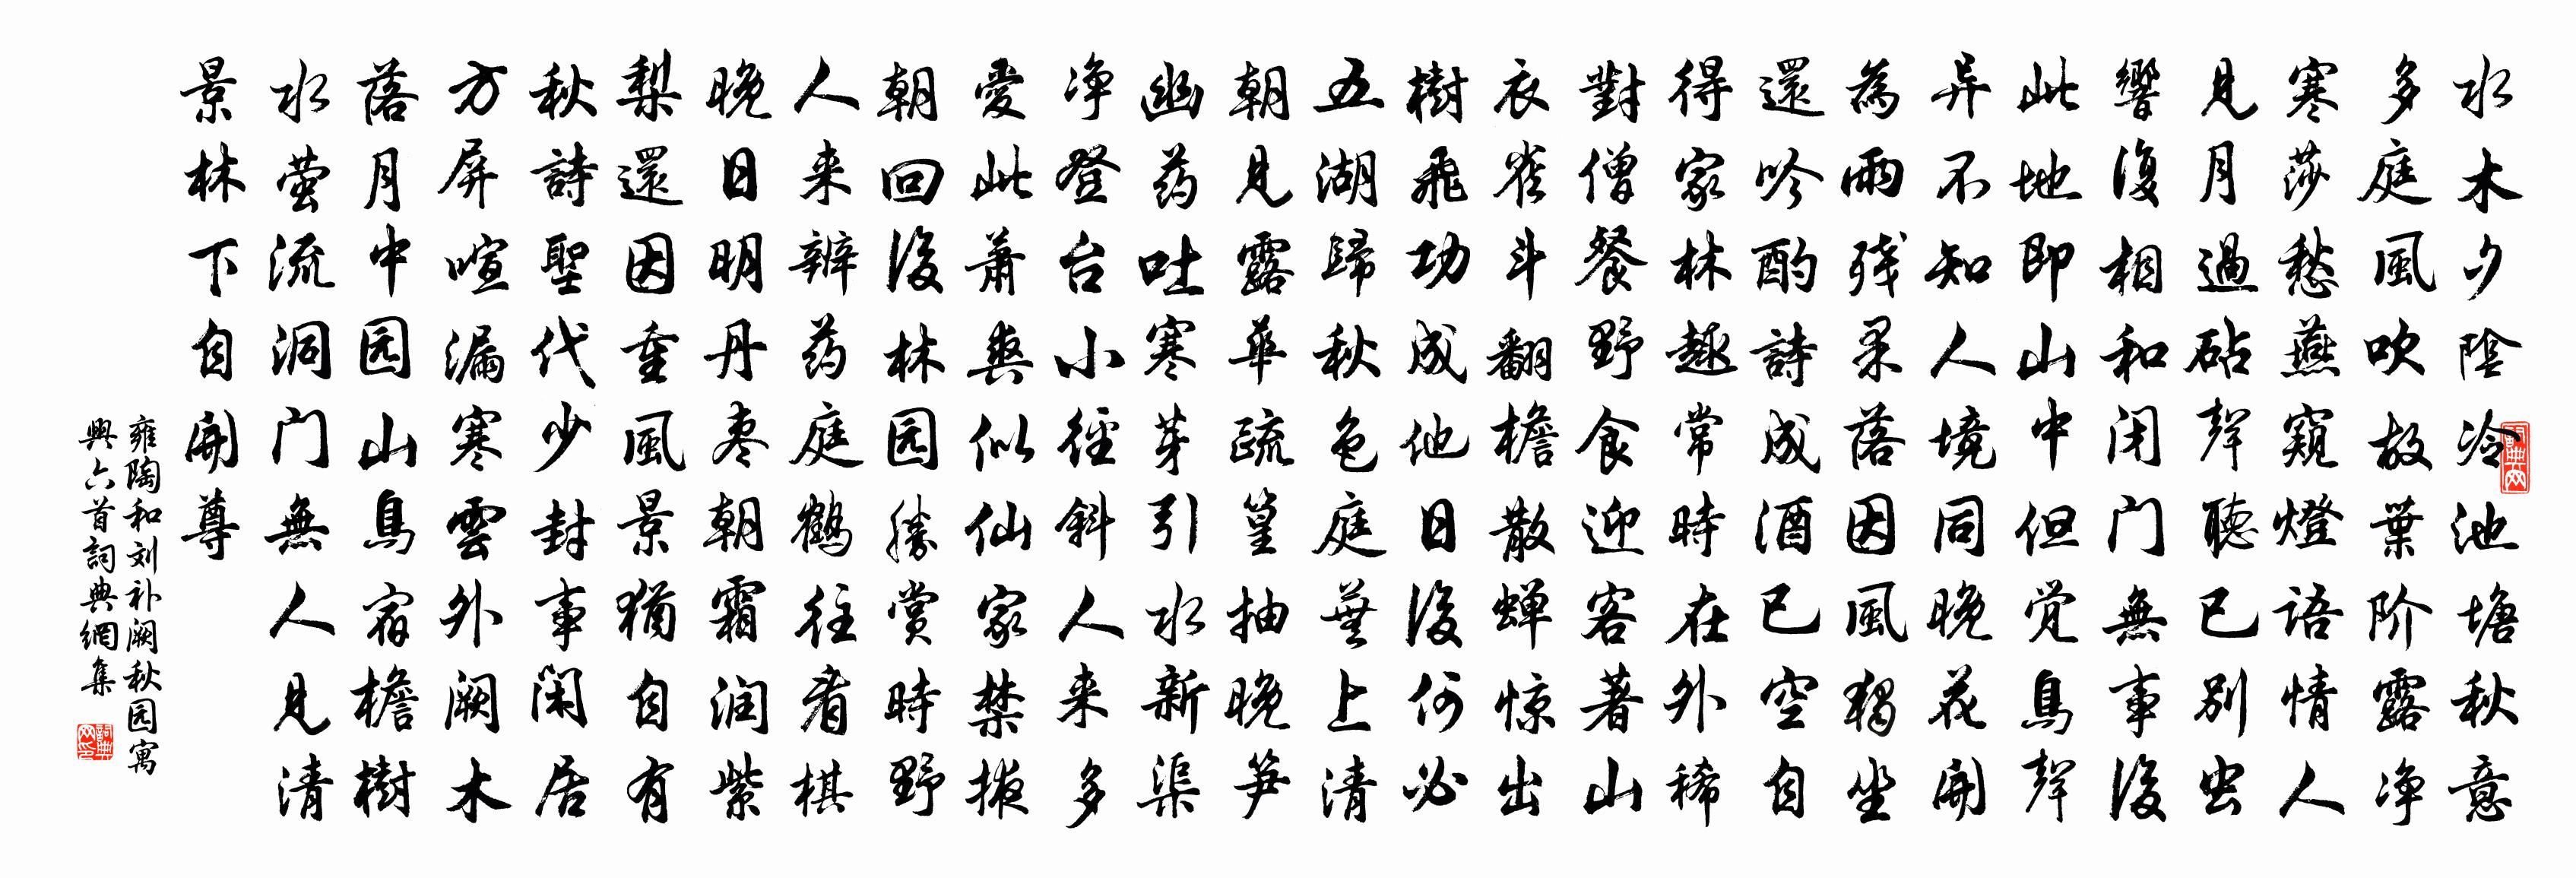 水木夕陰冷池塘秋意
多庭風吹故葉阶露净
寒莎愁燕窺燈語情人
見月過砧聲聽已別虫
響復相和闭门無事後
此地即山中但觉鳥聲
异不知人境同晚花開
為雨残果落因風獨坐
還吟酌詩成酒已空自
得家林趣常時在外稀
對僧餐野食迎客著山
衣雀斗翻檐散蝉惊出
樹飛功成他日後何必
五湖歸秋色庭蕪上清
朝見露華疏篁抽晚笋
幽药吐寒芽引水新渠
净登台小徑斜人来多
愛此蕭爽似仙家禁掖
朝回後林园勝賞時野
人来辨药庭鶴往看棋
晚日明丹枣朝霜润紫
梨還因重風景猶自有
秋詩聖代少封事閑居
方屏喧漏寒雲外阙木
落月中园山鳥宿檐樹
水萤流洞门無人見清
景林下自開尊
雍陶和刘补阙秋园寓
興六首詞典網集